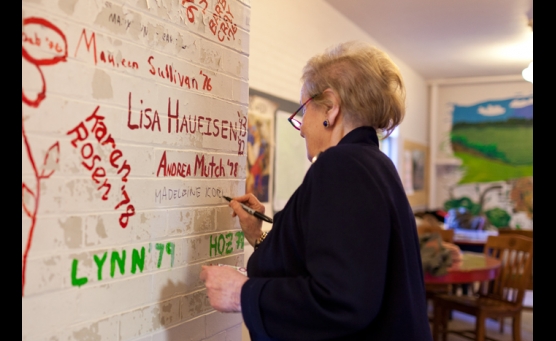 Deb '76
Maureen Sullivan '76
LISA HAUFISEN
Karen
Rosen
'78
ANDREA MUTCH '78
MADELEINE
LYNN '79
HOZ